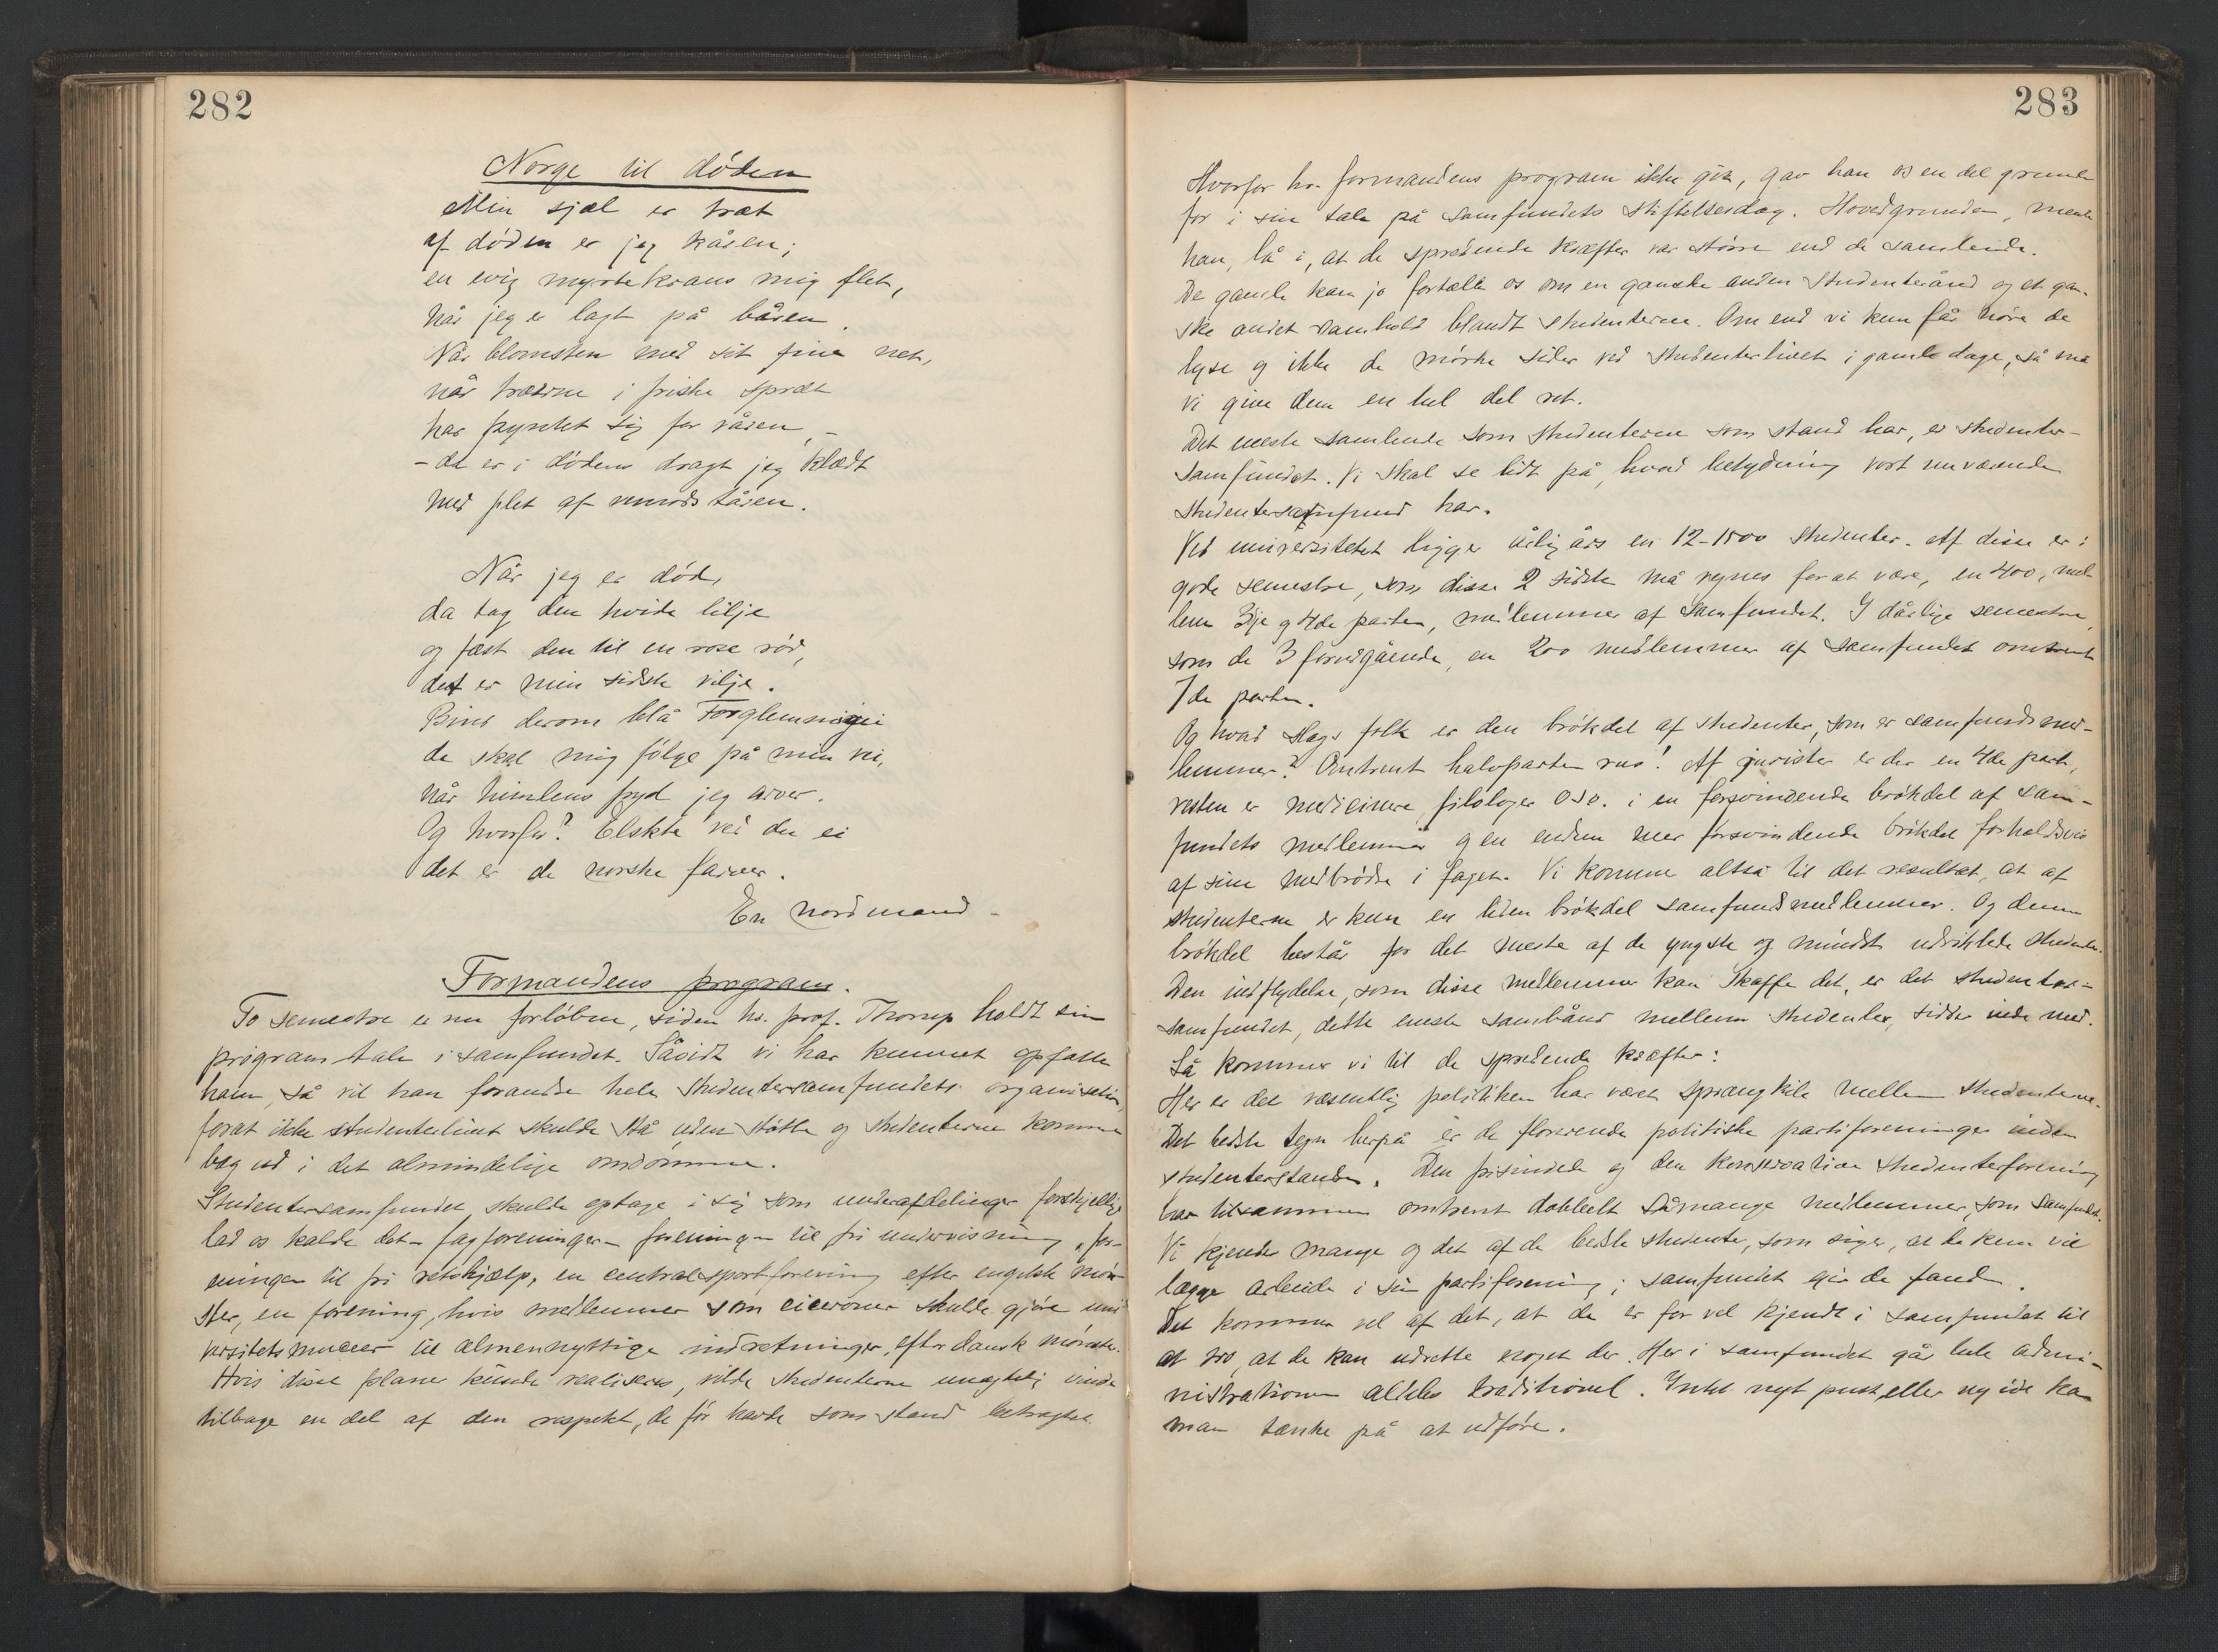 282
Norge til døden
Min sjæl er træt
af døden er jeg kåren;
en evig myrtekrans mig flet,
når jeg er lagt på båren.
Når blomsten med sit fine net,
når træerne i friske spræt
har pyntet sig for våren, –
– da er i dødens dragt jeg klædt
med plet af tåren.
Når jeg er død,
da tag den hvide lilje
og fæst den til en rose rød,
det er min sidste vilje.
Bind derom blå Forglemmigei
de skal mig følge på min vei,
når himlens fryd jeg arver.
Og hvorfor? Elskte ved du ei
det er de norske farver.
En nordmand –
Formandens program.
To semestre er nu forløbne, siden hr. prof. Thorup holdt sin
programtale i samfundet. Såvidt vi har kunnet opfatte
ham, så vil han forandre hele studentersamfundets organisation,
forat ikke studenterlivet skulde stå uden støtte og studenterne komme
bag ud i det almindelige omdømme.
Studentersamfundet skulde optage i sig som underafdelinger forskjellige
lad os kalde det – fagforeninger – foreningen til fri undervisning, for-
eningen til fri retshjælp, en centralsportsforening efter engelsk møn-
ster, en forening, hvis medlemmer som ciceroner skulde gjøre uni
versitetsmuseer til almennyttige indretninger, efter dansk mønster.
Hvis disse planer kunde realiseres, vilde studenterne unegtelig vinde
tilbage en del af den respekt, de før havde som stand betragtet.
283
Hvorfor hr. formandens program ikke gik, gav han os en del grunde
for i sin tale på samfundets stiftelsesdag. Hovedgrunden, mente
han, lå i, at de spredende kræfter var større end de samlende.
De gamle kan jo fortælle os om en ganske anden studenterånd og et gan-
ske andet samhold blandt studenterne. Om end vi kun får høre de
lyse og ikke de mørke sider ved studenterlivet i gamle dage, så må
vi give dem en hel del ret.
Det meste samlende som studenterne som stand har, er studenter-
samfundet. Vi skal se lidt på, hvad betydning vort nuværende
studentersamfund har.
Ved universitetet ligger årlig års en 12-1500 studenter. Af disse er i
gode semestre, som disse 2 sidste må regnes forat være, en 400, mel-
lem 3dje og 4de parten, medlemmer af samfundet. I dårlige semestre,
som de 3 foregående, en 200 medlemmer af samfundet omtrent
7de parten.
Og hvad slags folk er den brøkdel af studenter, som er samfundsmed-
lemmer? Omtrent halvparten rus! Af jurister er der en 4de part,
resten er medicinere, filologer o s v. i en forsvindende brøkdel af sam-
fundets medlemmer og en endnu mer forsvindende brøkdel forholdsvis
af sine medbrødre i faget. Vi kommer altså til det resultat, at af
studenterne er kun en liden brøkdel samfundsmedlemmer. Og denne
brøkdel består for det meste af de yngste og mindst udviklede studenter.
Den indflydelse, som disse medlemmer kan skaffe det, er det studenter-
samfundet, dette eneste sambånd mellem studenter, sidder inde med.
Så kommer vi til de spredende kræfter:
Her er det væsentlig politiken har været sprængkile mellem studenterne.
Det bedste tegn herpå er de florerende politiske partiforeninger inden
studenterstanden. Den frisindede og den konservative studenterforening
har tilsammen omtrent dobbelt såmange medlemmer, som samfundet.
Vi kjender mange og det af de bedste studenter, som siger, at de kun vil
lægge arbeide i sin partiforening; samfundet gir de fand.
Det kommer vel af det, at de er for vel kjendt i samfundet til
at tro, at de kan udrette noget der. Her i samfundet går hele admi-
nistrationen aldeles traditionel. Intet nyt pust, eller ny ide kan
man tænke på at udføre.